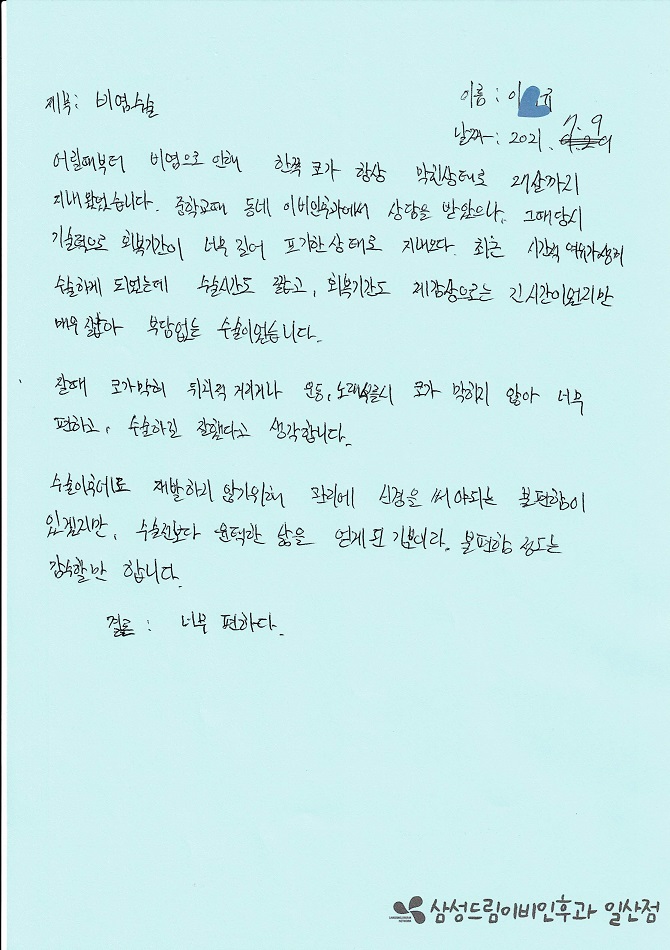 제목: 비염수술
이름: 이 규
날짜: 2021. 7. 9
어릴때부터 비염으로 인해 한쪽 코가 항상 막힌상태로 21살까지
지내왔었습니다. 중학교때 동네 이비인후과에서 상담을 받았으나, 그때당시
기술력으로 회복기간이 너무 길어 포기한 상태로 지내오다. 최근 시간적 여유가생겨
수술하게 되었는데 수술시간도 짧고, 회복기간도 제감상으로는 긴시간이었지만
매우 짧아 부담없는 수술이었습니다.
잘때 코가막혀 뒤척거리거나 운동, 노래부를시 코가 막히지 않아 너무
편하고, 수술하긴 잘했다고 생각합니다.
수술이후에도 재발하지 않기위해 관리에 신경을 써야되는 불편함이
있겠지만, 수술전보다 윤택한 삶을 얻게된 기분이라. 불편함 정도는
감수할만 합니다.
결론: 너무 편하다.
삼성드림이비인후과 일산점